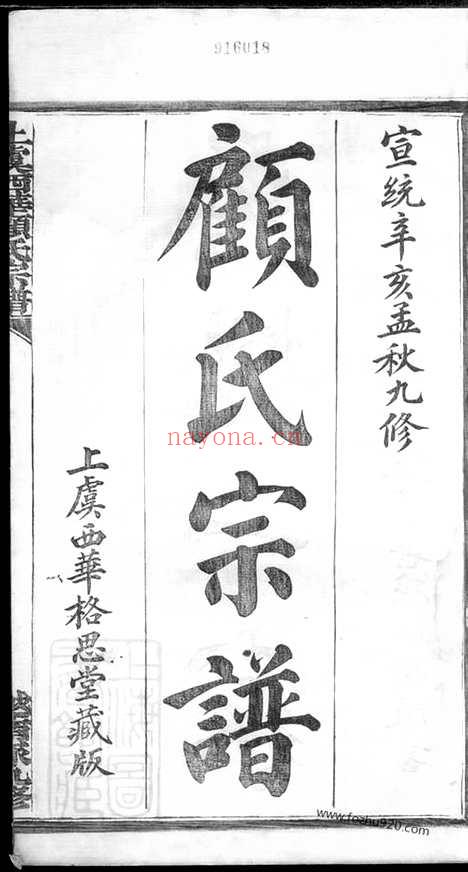 916018
宣統辛亥孟秋九修
顧氏宗譜
上虞西華格思堂藏版
上虞西華顧氏宗譜
nayona.cn
www.fozhu920.com